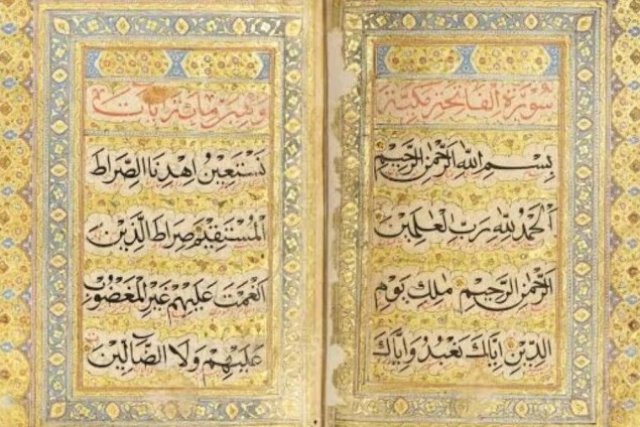 سُورَةُ الفَاتِحَةِ مَكِيَّة
بِسْمِ اللهِ الرَّحْمٰنِ الرَّحِيْمِ
اَلْحَمْدُ لِلّٰهِ رَبِّ الْعٰلَمِيْنَ
الرَّحْمٰنِ الرَّحِيْمِ مٰلِكِ يَوْمِ
الدِّيْنِ اِيَّاكَ نَعْبُدُ وَاِيَّاكَ
نَسْتَعِيْنُ اِهْدِنَا الصِّرَاطَ
الْمُسْتَقِيْمَ صِرَاطَ الَّذِيْنَ
اَنْعَمْتَ عَلَيْهِمْ غَيْرِ الْمَغْضُوْبِ
عَلَيْهِمْ وَلَا الضَّآلِّيْنَ